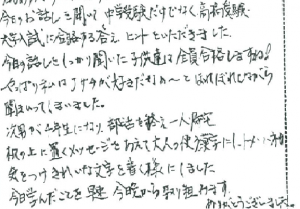 今日のお話しを聞いて 中学受験だけでなく高校受験
大学入試に合格する答え、ヒントをいただきました。
今日の話しをしっかり聞いた子供達は全員合格しますね!
やっぱり私は が好きだなあ〜とほれぼれしながら
聞きいってしまいました。
次男が 年生になり、部活を終え一人
机の上に置くメッセージをあえて大人の使う漢字にし、
気をつけきれいな文字を書く様にしました
今日学んだことを早速 今晩から取り組みます。
ありがとうございました。